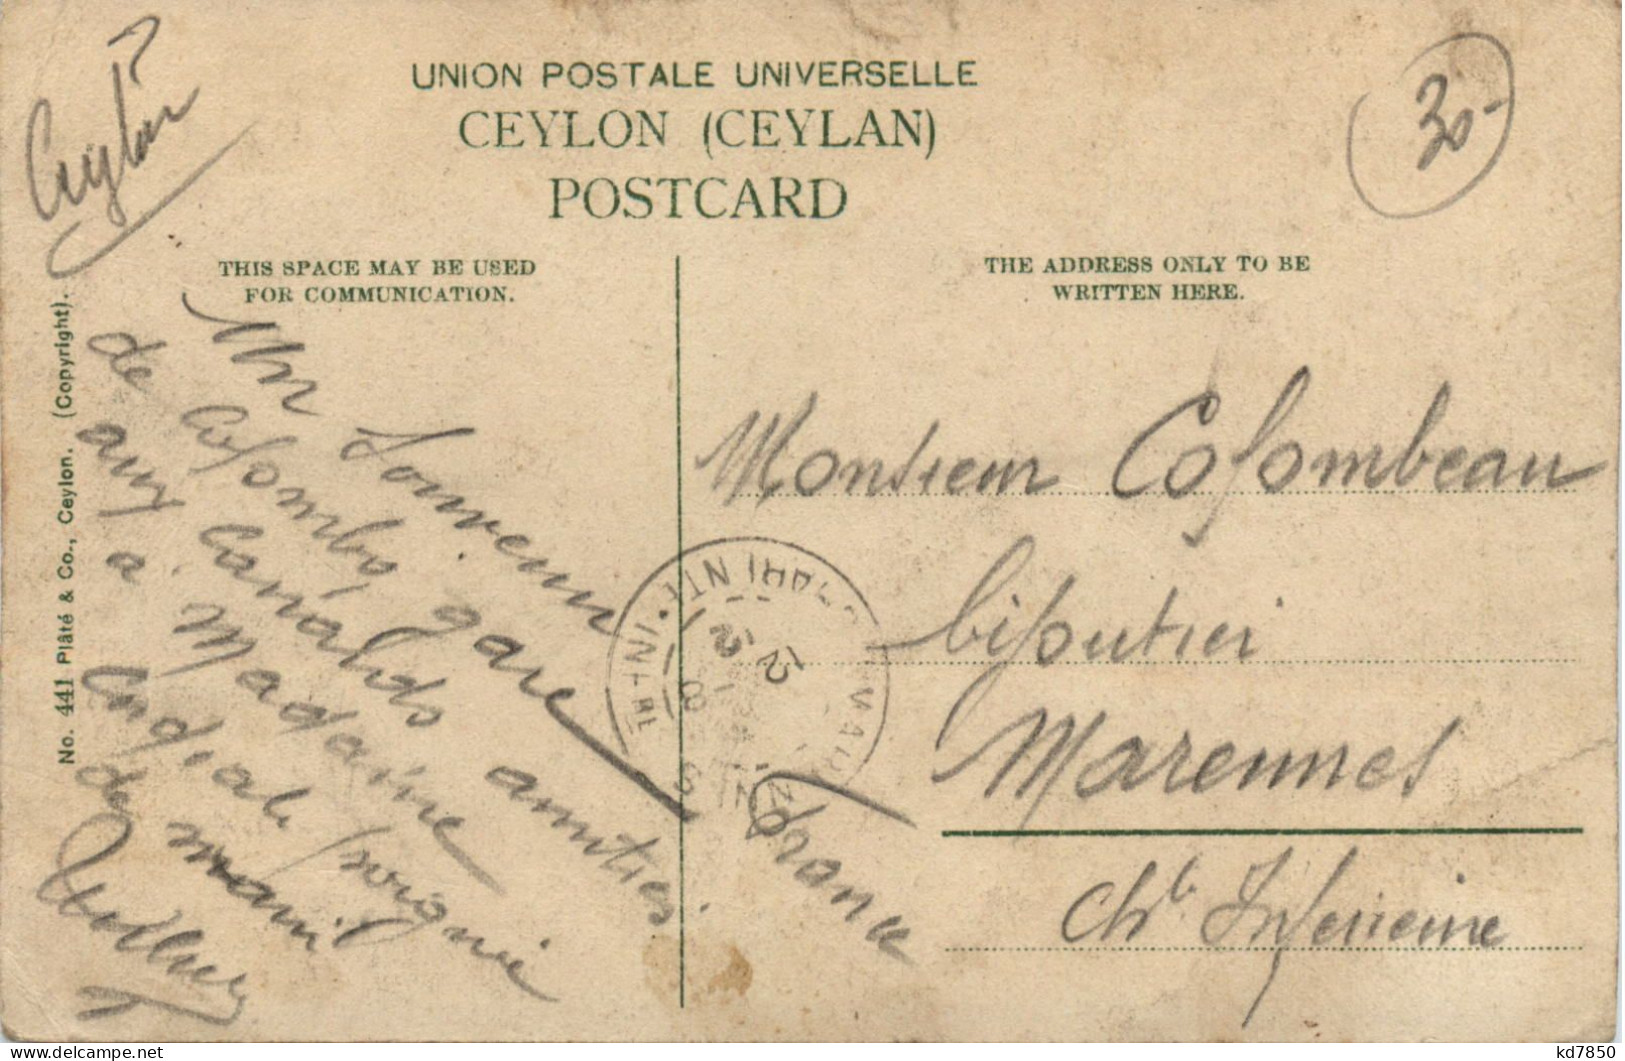 Ceylon
UNION POSTALE UNIVERSELLE
CEYLON (CEYLAN)
POSTCARD
30-
THIS SPACE MAY BE USED
FOR COMMUNICATION.
THE ADDRESS ONLY TO BE
WRITTEN HERE.
No. 441 Plâté & Co., Ceylon. (Copyright).
Un Souvenir
de Colombo gare
aux Canards amitiés
a Madame
Cordiale poignée
de main
Monsieur Colombeau
bijoutier
Marennes
Chte Inferieure
France
kd7850